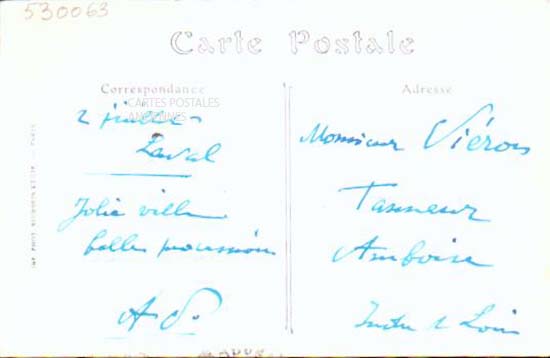 530063
Carte Postale
Correspondance
Adresse
CARTES POSTALES
ANCIENNES
2 juillet
Laval
Jolie ville
belle procession
A P.
Monsieur Viérou
Tanneur
Amboise
Indre & Loire